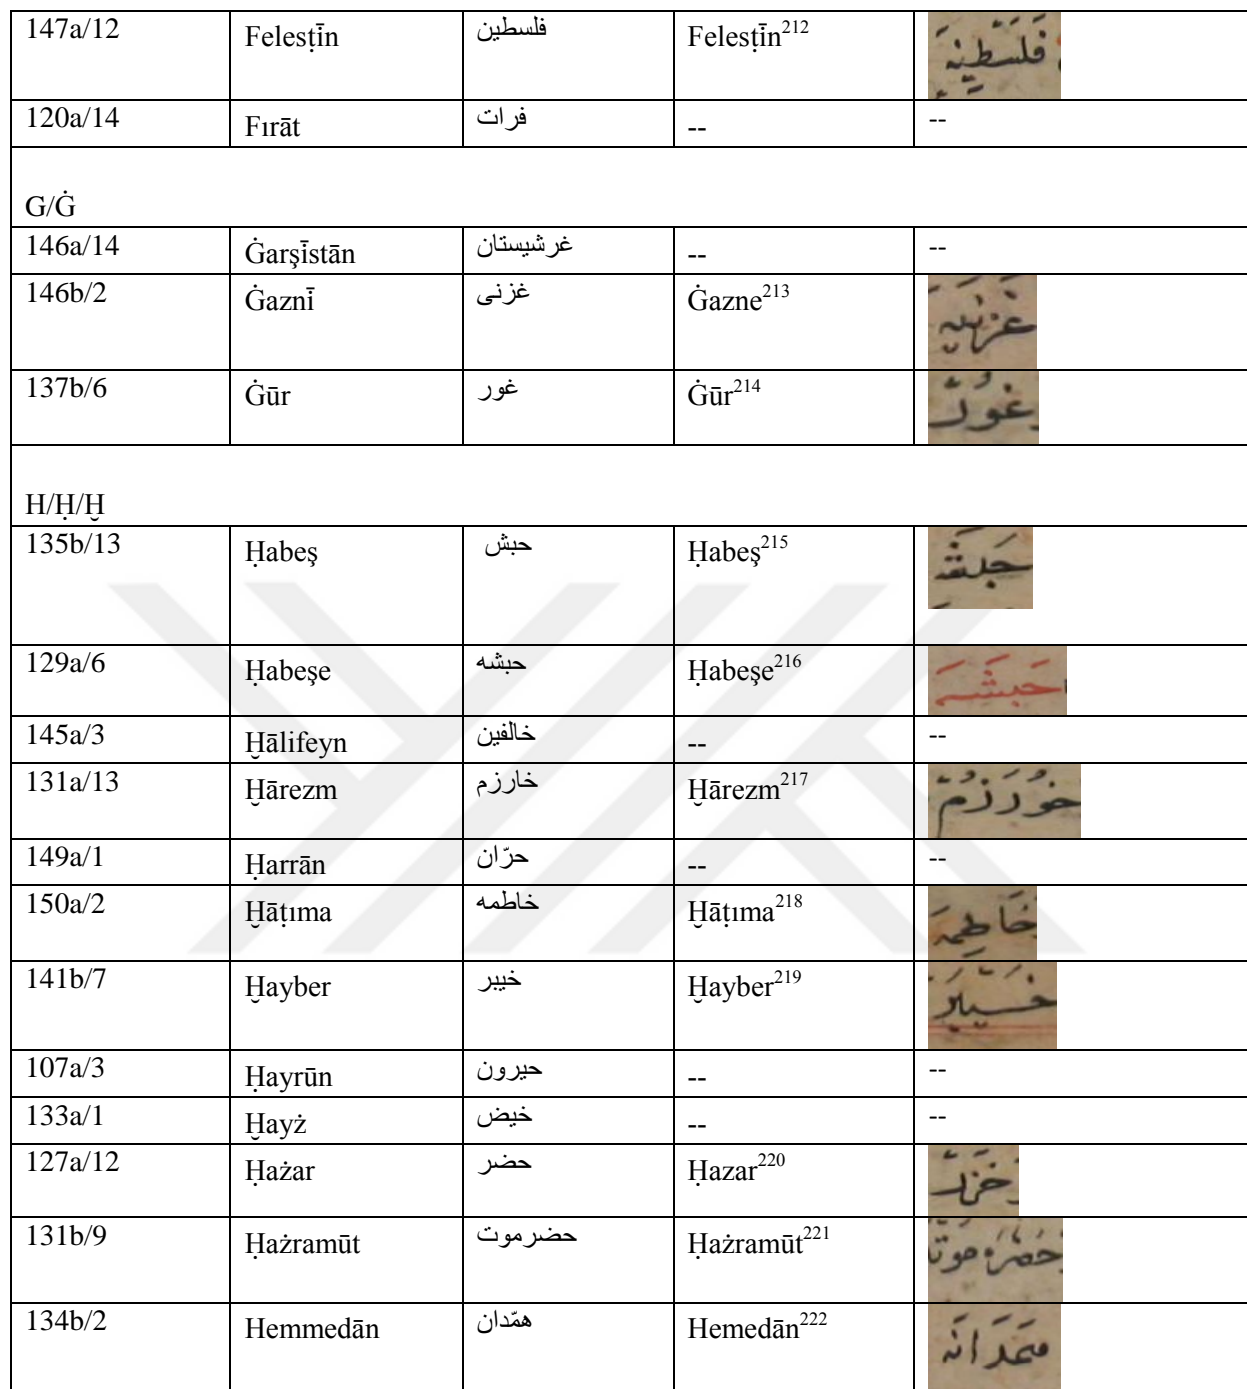 147a/12 Felesṭīn فلسطين Felesṭīn212 فَلَسْطِينَه
120a/14 Fırāt فرات -- --
G/Ġ
146a/14 Ġarşīstān غرشيستان -- --
146b/2 Ġaznī غزنى Ġazne213
137b/6 Ġūr غور Ġūr214 غور
H/Ḥ/Ḫ
135b/13 Ḥabeş حبش Ḥabeş215
129a/6 Ḥabeşe حبشه Ḥabeşe216 حبشه
145a/3 Ḫālifeyn خالفين -- --
131a/13 Ḫārezm خارزم Ḫārezm217 خورزم
149a/1 Ḥarrān حرّان -- --
150a/2 Ḫāṭıma خاطمه Ḫāṭıma218 خاطمه
141b/7 Ḫayber خيبر Ḫayber219 خيبر
107a/3 Ḥayrūn حيرون -- --
133a/1 Ḫayż خيض -- --
127a/12 Ḥażar حضر Ḥazar220 خزر
131b/9 Ḥażramūt حضرموت Ḥażramūt221
134b/2 Hemmedān همّدان Hemedān222